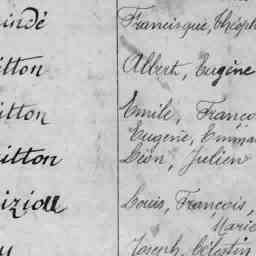 indé Francisque, Théoph
itton Albert, Eugène
itton Emile, Franço
Eugene, Emma
itton Léon, Julien
iziou Louis, François,
Marie
Joseph, Célestin